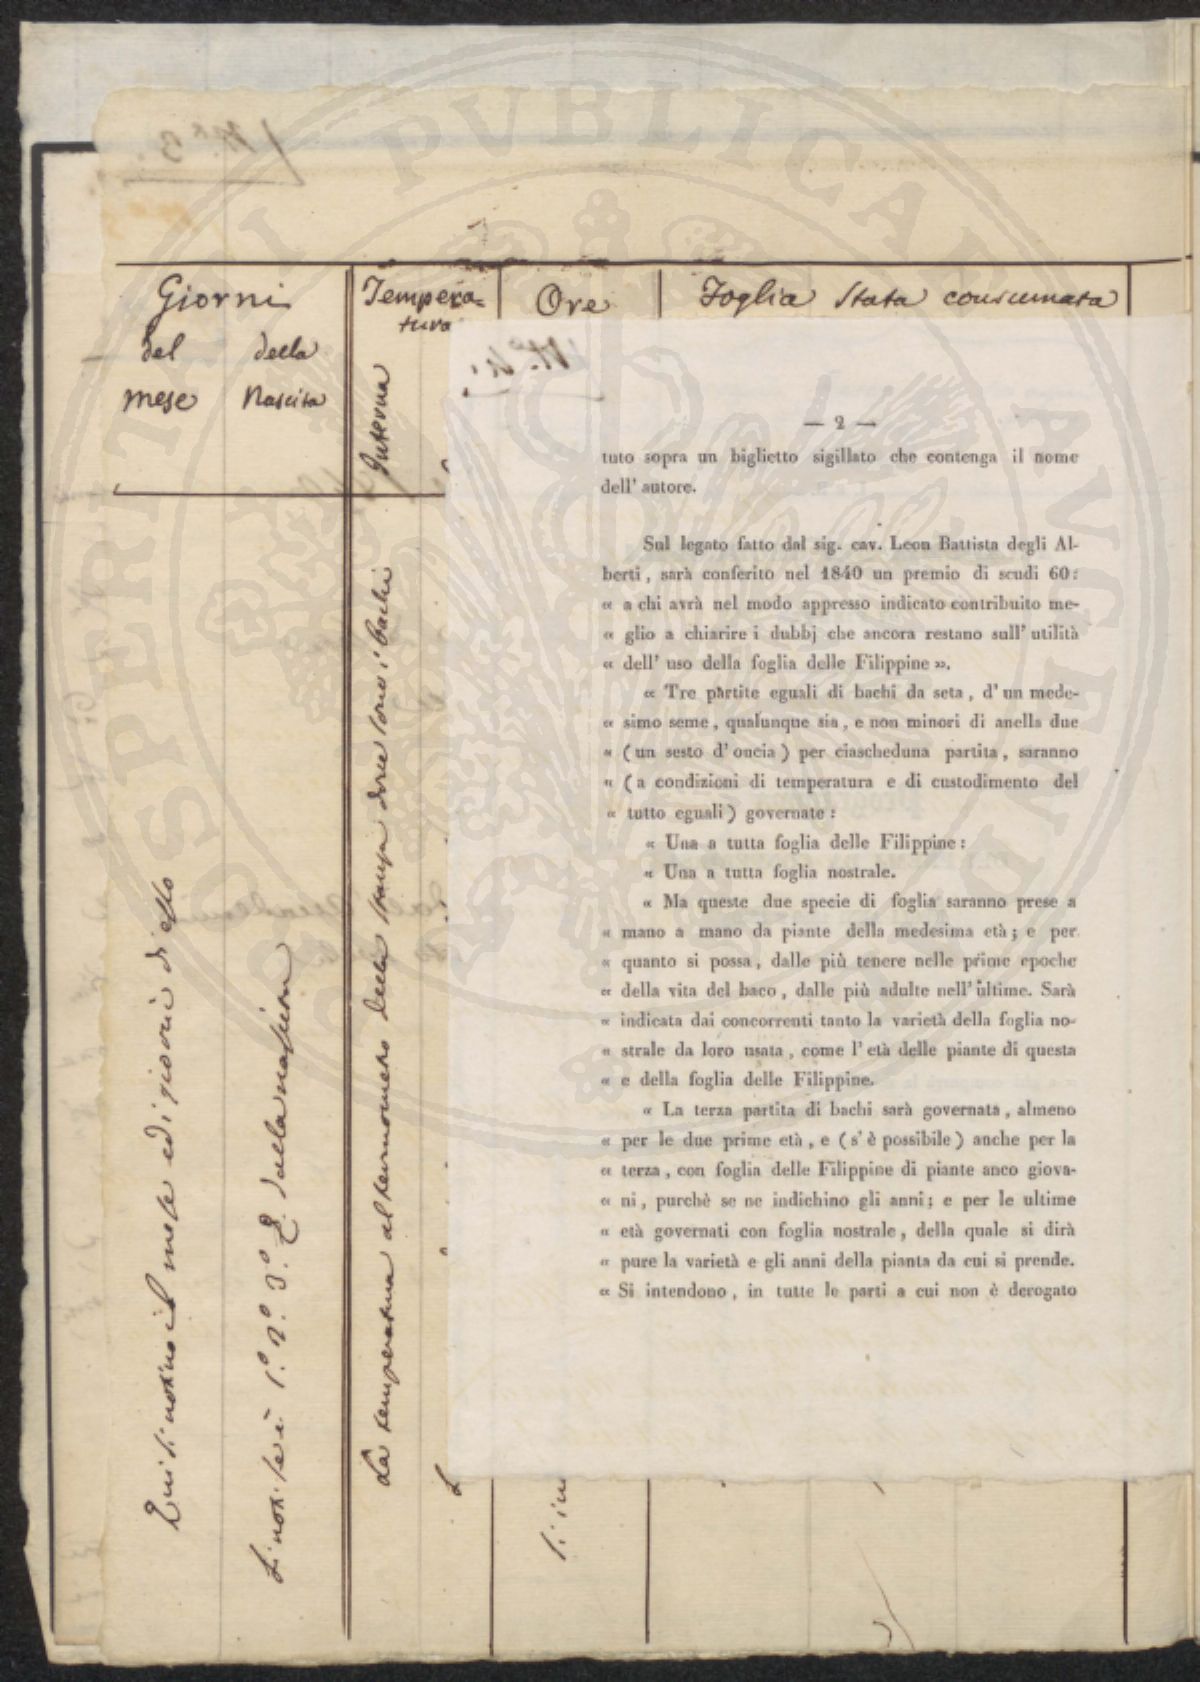 Giorni
del della
mese Nascita
Tempera=
tura
Interna
Ore
Foglia stata consumata
Qui si notino il mese ed i giorni di esso
Si noti se è 1.° 2.° 3.° &. dalla nascita
La temperatura al termometro della stanza dove sono i bachi
— 2 —
tuto sopra un biglietto sigillato che contenga il nome
dell' autore.
Sul legato fatto dal sig. cav. Leon Battista degli Al-
berti, sarà conferito nel 1840 un premio di scudi 60:
« a chi avrà nel modo appresso indicato contribuito me-
« glio a chiarire i dubbj che ancora restano sull' utilità
« dell' uso della foglia delle Filippine ».
« Tre partite eguali di bachi da seta, d' un mede-
« simo seme, qualunque sia, e non minori di anella due
« (un sesto d' oncia) per ciascheduna partita, saranno
« (a condizioni di temperatura e di custodimento del
« tutto eguali) governate:
« Una a tutta foglia delle Filippine:
« Una a tutta foglia nostrale.
« Ma queste due specie di foglia saranno prese a
« mano a mano da piante della medesima età; e per
« quanto si possa, dalle più tenere nelle prime epoche
« della vita del baco, dalle più adulte nell' ultime. Sarà
« indicata dai concorrenti tanto la varietà della foglia no-
« strale da loro usata, come l' età delle piante di questa
« e della foglia delle Filippine.
« La terza partita di bachi sarà governata, almeno
« per le due prime età, e (s' è possibile) anche per la
« terza, con foglia delle Filippine di piante anco giova-
« ni, purchè se ne indichino gli anni; e per le ultime
« età governati con foglia nostrale, della quale si dirà
« pure la varietà e gli anni della pianta da cui si prende.
« Si intendono, in tutte le parti a cui non è derogato